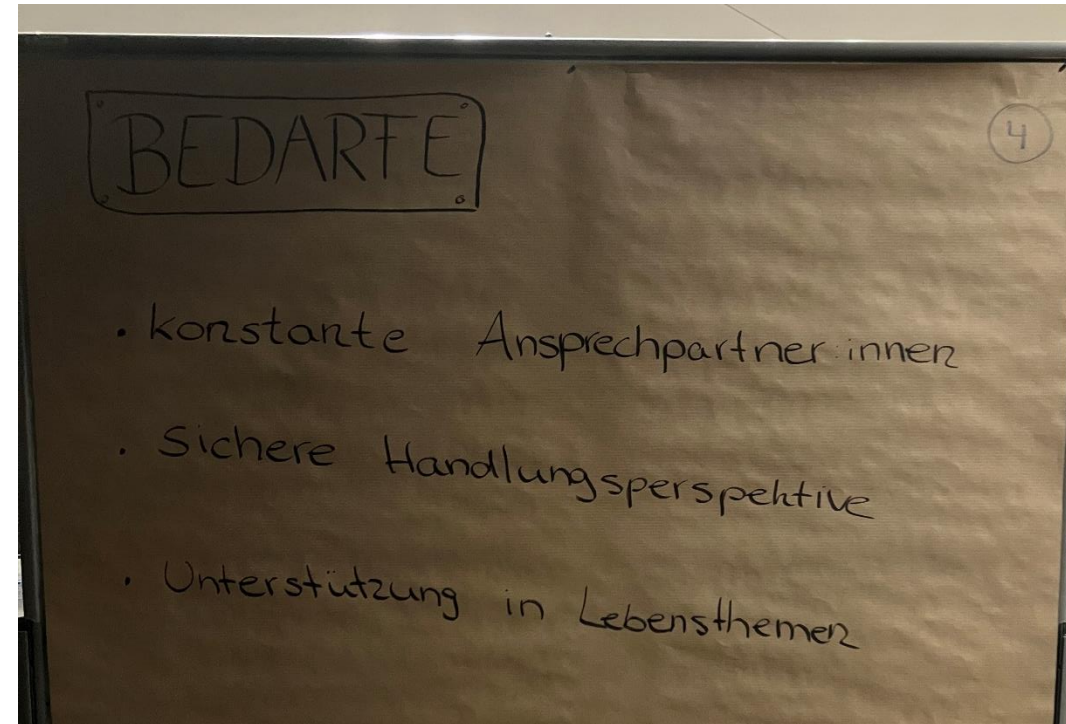 BEDARFE
4
· konstante Ansprechpartner:innen
· Sichere Handlungsperspektive
· Unterstützung in Lebensthemen